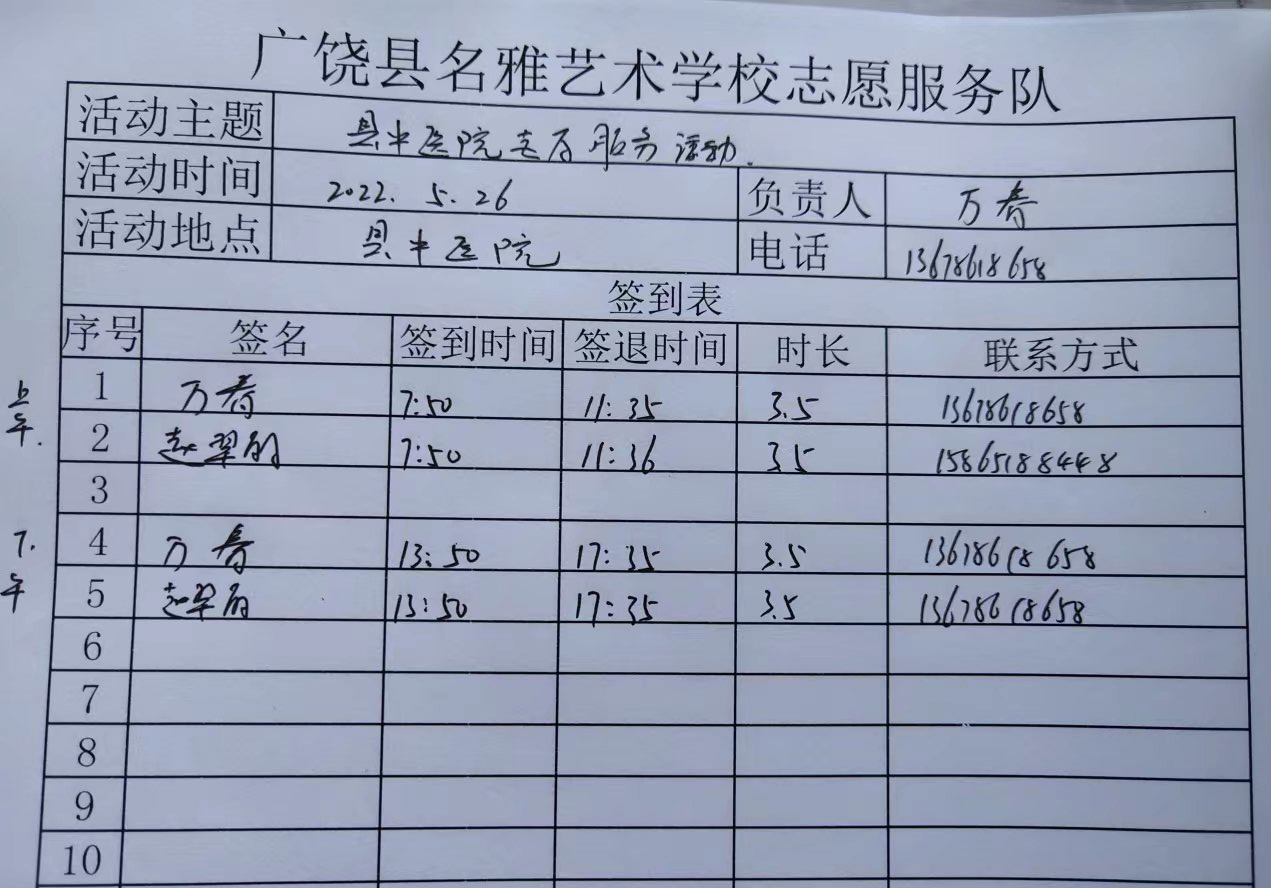 广饶县名雅艺术学校志愿服务队
活动主题 县中医院志愿服务活动.
活动时间 2022. 5. 26 负责人 万春
活动地点 县中医院 电话 13678618658
签到表
序号 签名 签到时间 签退时间 时长 联系方式
上午. 1 万春 7:50 11:35 3.5 13678618658
2 赵翠 7:50 11:36 3.5 15865188448
3
下午 4 万春 13:50 17:35 3.5 13678618658
5 赵翠 13:50 17:35 3.5 13678618658
6
7
8
9
10